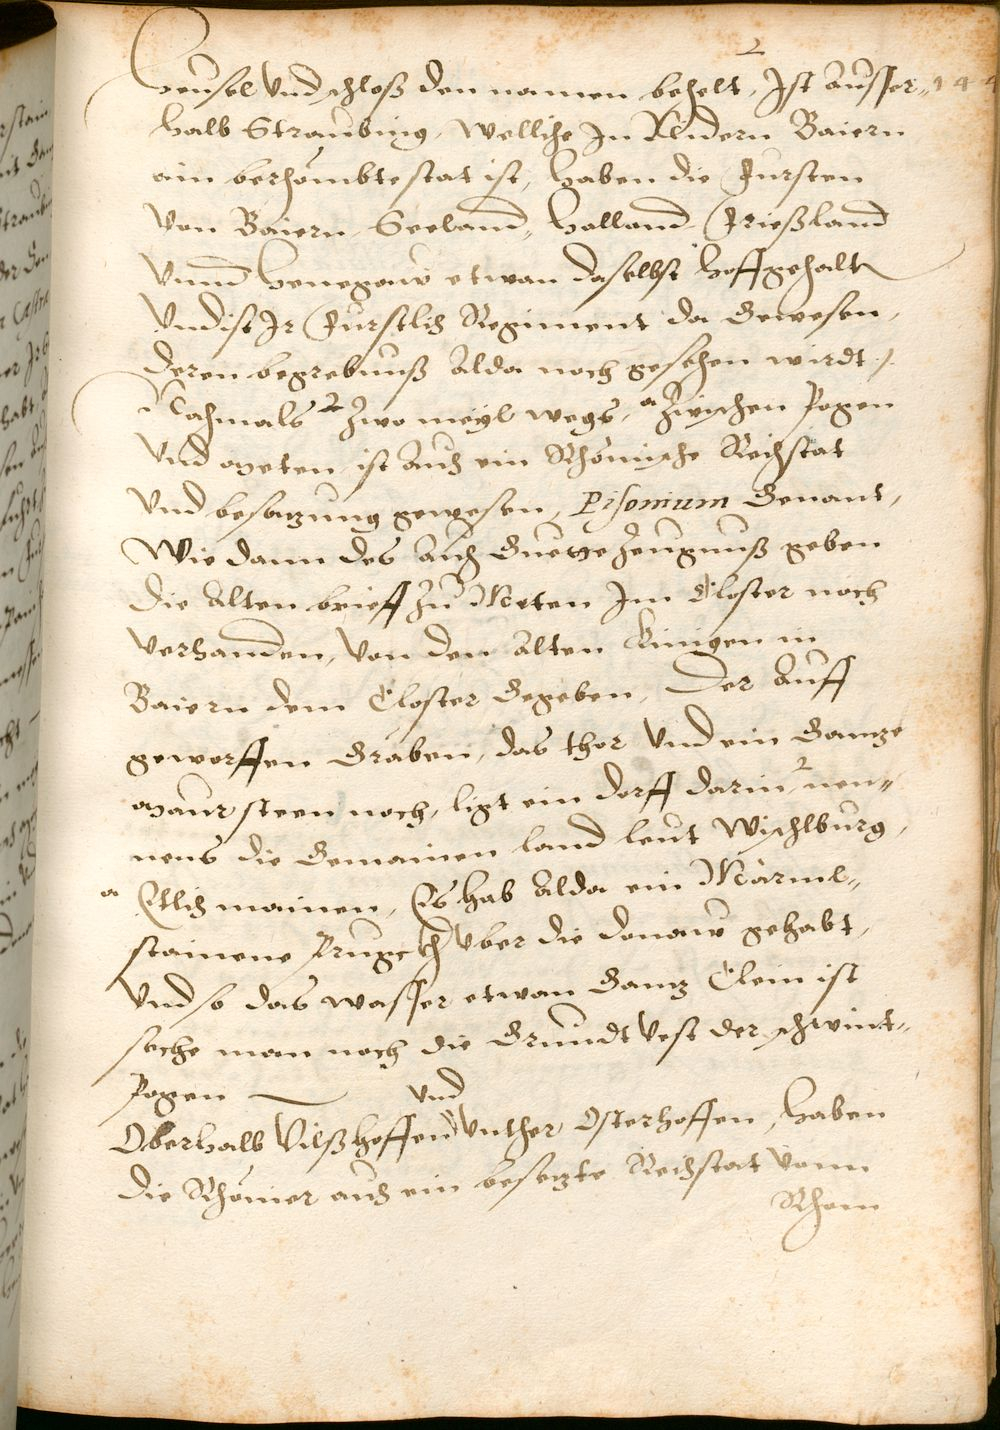 heusel vnd schloß den namen behelt, Ist ausser= 144
halb Straubing, Welliche In Nidern Baiern
ain berhömbte stat ist, haben die Fursten
Von Baiern, Seeland, Holland, Frießland
Vnnd Henegew etwan daselbst hoffgehalten
Vnd ist Ir Furstlich Regiment da Gewesen,
deren begrebnuß alda noch gesehen wirdt /.
Nachmals 2 zwo meyl wegs, a zwischen Pogen
Vnd meten ist auch ein Rhömische Reichstat
Vnd besatzung gewesen, Pisonium Genant,
Wie dann des auch Guette Zeugnuß geben
die alten brieff zu Meten Im Closter noch
Verhanden, Von den alten Kinigen in
Baiern dem Closter Gegeben, Der auff
geworffen Graben, das thor Vnd ein Gantze
maur steen noch, ligt ein dorff darin 2 nen=
nens die Gemainen land leut Wischlburg,
a Etlich mainen, Es hab alda ein Märml=
stainene Prugckh Vber die donaw gehabt,
Vnd so das wasser etwan Gantz Clein ist
seche man noch die Grundt Vest der schwint=
Pogen —— Vnd
Oberhalb Vilßhoffen Vnther Osterhoffen, haben
die Rhömer auch ein besetzte Reichstat Vonn
Rhom